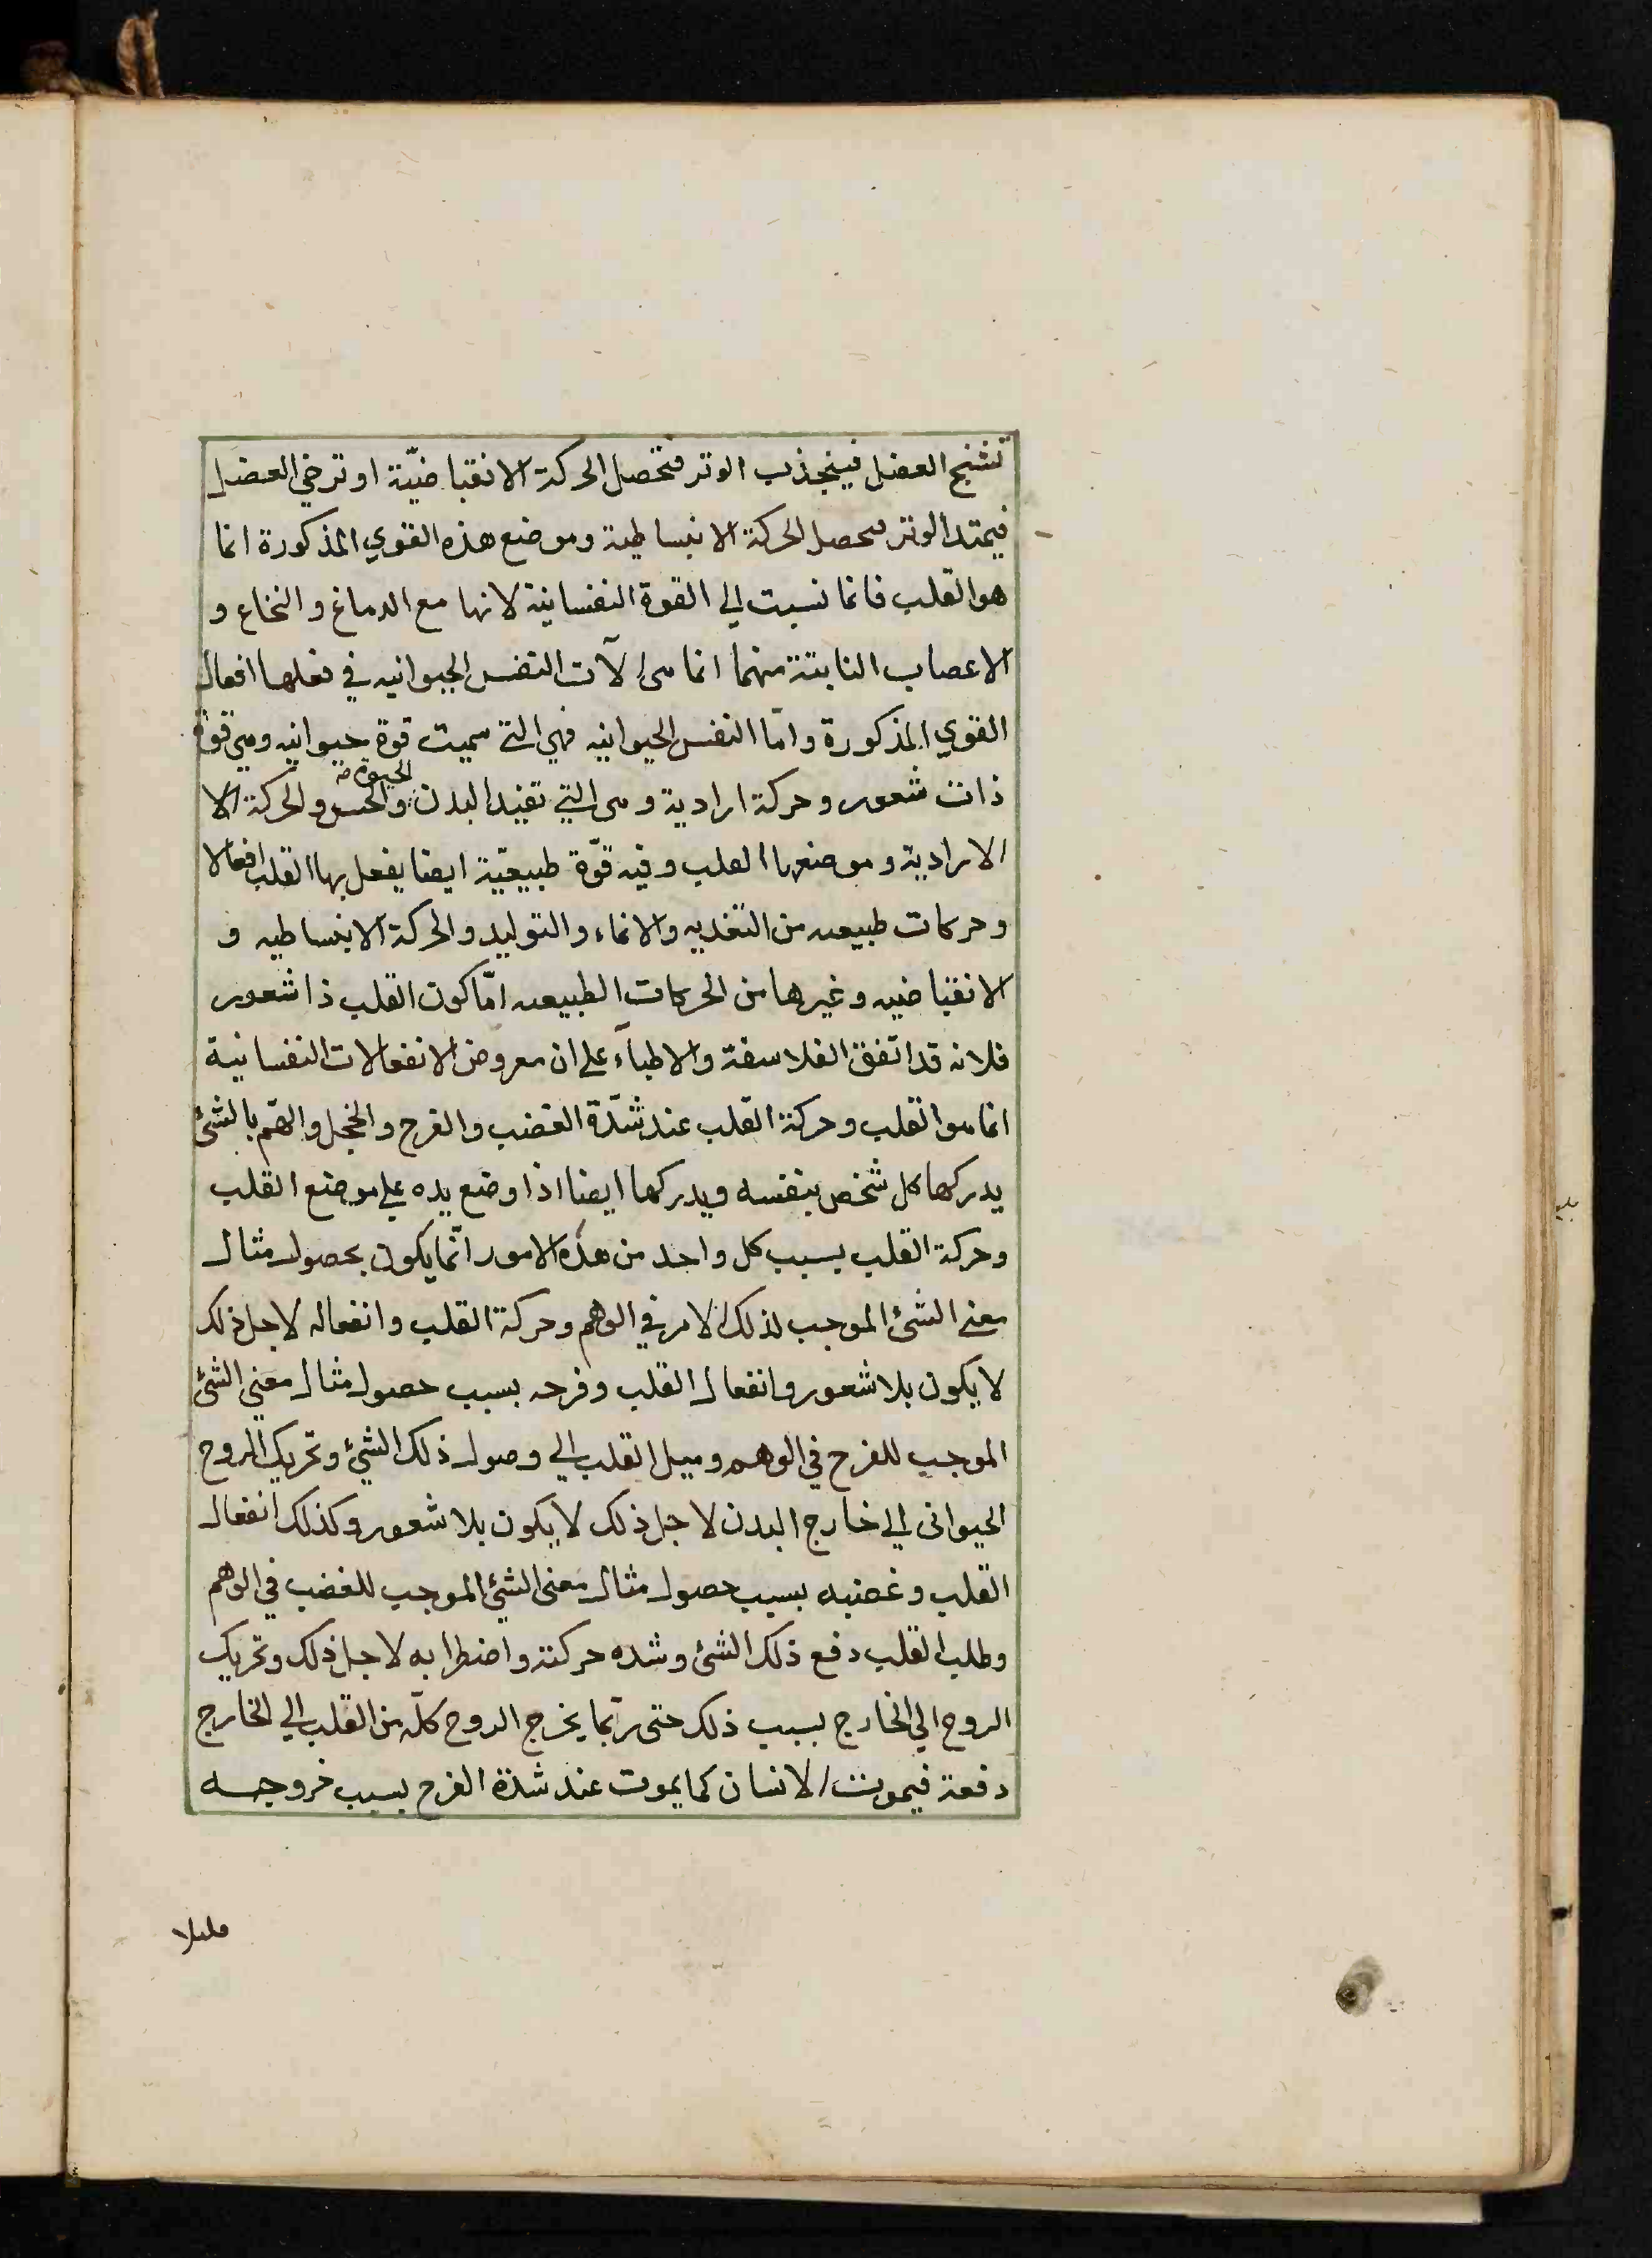 تشنج العضل فينجذب الوتر فتحصل الحركة الانقباضيّة او ترخي العضل
فيمتد الوتر فيحصل الحركة الانبساطية وموضع هذه القوي المذكورة انما
هو القلب فانما نسبت الي القوة النفسانية لانها مع الدماغ والنخاع و
الاعصاب النابتة منهما انما هى آلات النفس الحيوانيه في فعلها افعال
القوي المذكورة وامّا النفس الحيوانيه فهي التي سميت قوة حيوانيه وهي قوة
ذات شعور وحركة ارادية وهى التي تفيد البدن الحيوة والحس والحركة الا
الارادية وموضعها القلب وفيه قوّة طبيعيّة ايضا يفعل بها القلب افعالا
وحركات طبيعيه من التغذيه والانماء والتوليد والحركة الانبساطيه و
الانقباضيه وغيرها من الحركات الطبيعيه امّا كون القلب ذا شعور
فلانه قد اتفق الفلاسفة والاطبآء علي ان معروض الانفعالات النفسانية
انما هو القلب وحركة القلب عند شدّة الغضب والفرح والخجل والهّم بالشئ
يدركها كل شخص بنفسه ويدركها ايضا اذا وضع يده علي موضع القلب
وحركة القلب بسبب كل واحد من هذه الامور انّما يكون بحصول مثال
معني الشئ الموجب لذلك الامر في الوهم وحركة القلب وانفعاله لاجل ذلك
لا يكون بلا شعور وانفعال القلب وفرحه بسبب حصول مثال معني الشئ
الموجب للفرح في الوهم وميل القلب الي وصول ذلك الشئ وتحريك الروح
الحيوانى الي خارج البدن لاجل ذلك لا يكون بلا شعور وكذلك انفعال
القلب وغضبه بسبب حصول مثال معنى الشئ الموجب للغضب في الوهم
وطلب القلب دفع ذلك الشئ وشده حركته واضطرابه لاجل ذلك وتحريك
الروح الي الخارج بسبب ذلك حتى ربّما يخرج الروح كلّه من القلب الي الخارج
دفعة فيموت الانسان كما يموت عند شدة الفرح بسبب خروجه
قليلا